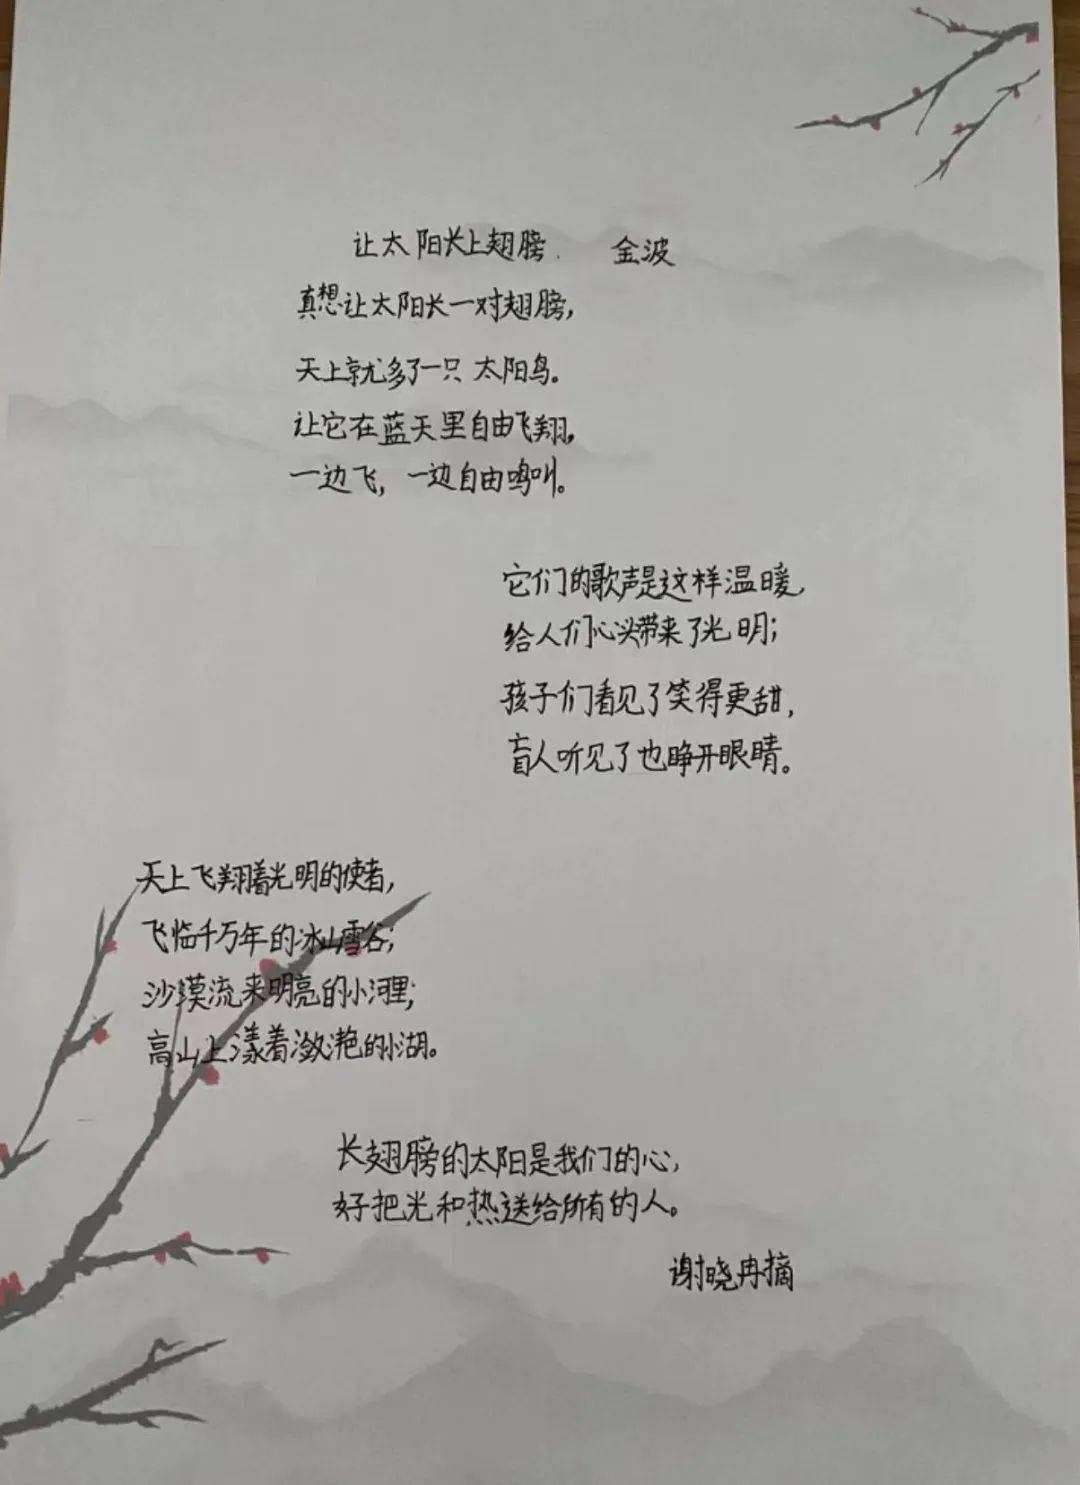 让太阳长上翅膀 金波
真想让太阳长一对翅膀，
天上就多了一只太阳鸟。
让它在蓝天里自由飞翔，
一边飞，一边自由鸣叫。
它们的歌声是这样温暖，
给人们心头带来了光明；
孩子们看见了笑得更甜，
盲人听见了也睁开眼睛。
天上飞翔着光明的使者，
飞临千万年的冰山雪谷；
沙漠流来明亮的小河里；
高山上漾着潋滟的小湖。
长翅膀的太阳是我们的心，
好把光和热送给所有的人。
谢晓冉摘